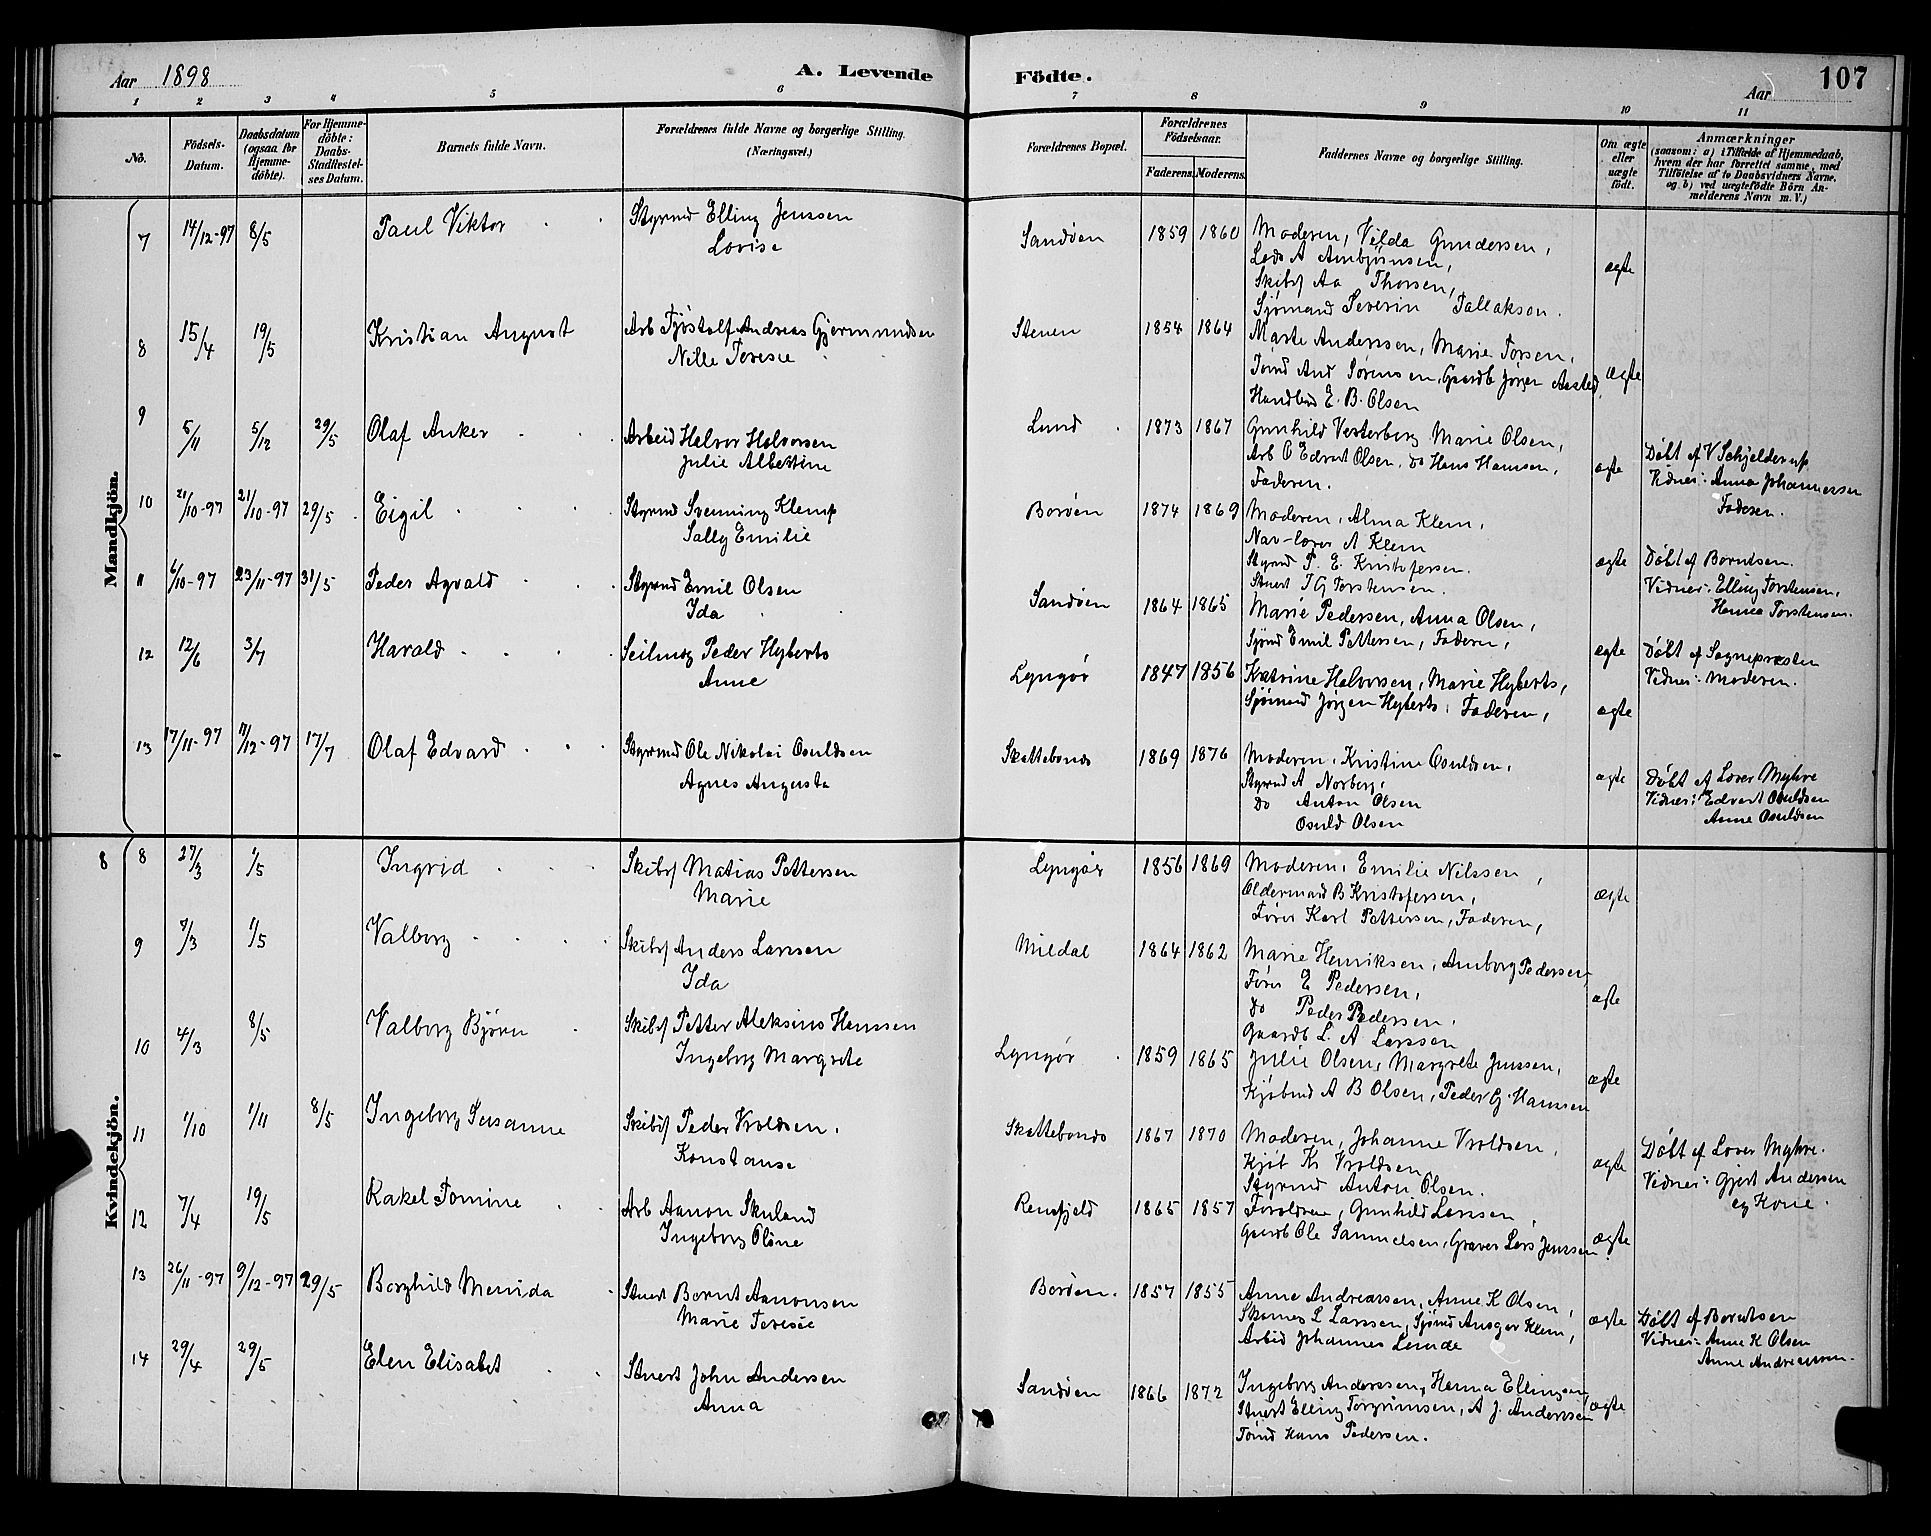 Aar 1898
A. Levende Födte.
Aar
107
1 2 3 4 5 6 7 8 9 10 11
No.
Födsels-Datum.
Daabsdatum (ogsaa for Hjemme-döbte).
For Hjemme-döbte: Daabs-Stadfæstel-ses Datum.
Barnets fulde Navn.
Forældrenes fulde Navne og borgerlige Stilling. (Næringsvei.)
Forældrenes Bopæl.
Forældrenes Födselsaar.
Faderens. Moderens.
Faddernes Navne og borgerlige Stilling.
Om ægte eller uægte födt.
Anmærkninger
(saasom: a) i Tilfælde af Hjemmedaab,
hvem der har forrettet samme, med
Tilföielse af to Daabsvidners Navne,
og b) ved uægtefödte Börn An-
melderens Navn m. V.)
Mandkjön.
7 14/12-97 8/5 Paul Viktor Styrmd Elling Jenssen Sandøen 1859 1860 Moderen, Vilda Gundersen,
Lovise Lods A Ambjørnsen, ægte
Skibsf Aa Thorsen,
Sjømand Severin Tallaksen.
8 15/4 19/5 Kristian August Arb Tjøstolf Andreas Gjermundsen Stenen 1854 1864 Marte Anderssen, Marie Torsen,
Nille Teresie Tømd And Sørensen, Gaardb Jørgen Aasted, ægte
Handlend E. B. Olsen
9 5/11 5/12 29/5 Olaf Anker Arbeid Halvor Halvorsen Lund 1873 1867 Gunhild Vesterberg Marie Olsen,
Julie Albertine Arb O Edvart Olsen, do Hans Hansen, ægte Døbt af V Schjelderup
Faderen. Vidner: Anna Johannessen
Faderen.
10 21/10-97 21/10-97 29/5 Eigil Styrmd Svenning Klemp Borøen 1874 1869 Moderen, Alma Klem,
Sally Emilie Nav-lærer A Klem
Styrmd P. E. Kristofersen. ægte Døbt af Berntsen.
Stuert T G Torstensen. Vidner: Elling Torstensen,
Hanna Torstensen.
11 6/10-97 23/11-97 31/5 Peder Agvald Styrmd Emil Olsen Sandøen 1864 1865 Marie Pedersen, Anna Olsen,
Ida Sjømd Emil Pettersen, Faderen, ægte Døbt af Sognepræsten
Vidner: Moderen.
12 12/6 3/7 Harald Seilmag Peder Hyberts Lyngør 1847 1856 Katrine Halvorsen, Marie Hyberts,
Anne Sjømand Jørgen Hyberts, Faderen, ægte
13 17/11-97 11/12-97 17/7 Olaf Edvard Styrmd Ole Nikolai Osuldsen Skattebonds 1869 1876 Moderen, Kristine Osuldsen,
Agnes Augusta Styrmd A Norberg, ægte Døbt af Lærer Myhre
do Anton Olsen Vidner: Edvart Osuldsen
Osuld Olsen Anne Osuldsen
Kvindekjön.
8 8 27/3 1/5 Ingrid Skibsf Matias Pettersen Lyngør 1856 1869 Moderen, Emilie Nilssen,
Marie Oldermand B Kristofersen, ægte
Fører Karl Pettersen, Faderen,
9 7/3 1/5 Valborg Skibsf Anders Larssen Mildal 1864 1862 Marie Henriksen, Amborg Pedersen,
Ida Fører E Pedersen, ægte
do Peder Pedersen,
Gaardb L. A Larssen
10 4/3 8/5 Valborg Bjørn Skibsf Petter Aleksius Hanssen Lyngør 1859 1865 Julie Olsen, Margrete Jenssen,
Ingeborg Margrete Kjøbmd A B Olsen, Peder G. Hanssen ægte
11 1/10 1/11 8/5 Ingeborg Susanne Skibsf Peder Vroldsen, Skattebonds 1867 1870 Moderen, Johanne Vroldsen,
Konstanse Kjøb Kr Vroldsen, ægte Døbt af Lærer Myhre.
Styrmd Anton Olsen. Vidner: Gjert Andersen
og Kone.
12 7/4 19/5 Rakel Tomine Arb Aanon Skuland Rensfjeld 1865 1857 Forældrene, Gunhild Larssen,
Ingeborg Oline Gaardb Ole Samuelsen, Graver Lars Jenssen ægte
13 26/11-97 9/12-97 29/5 Borghild Menida Stuert Bernt Aanonsen Borøen. 1857 1855 Anne Andreassen, Anne K Olsen,
Marie Teresie Skomag L Larssen, Sjømd Ansgar Klem, ægte Døbt af Berentsen
Arbeid Johannes Lunde Vidner: Anne K Olsen
Anne Andreassen.
14 29/4 29/5 Elen Elisabet Stuert John Andersen Sandøen 1866 1872 Ingeborg Anderssen, Hanna Ellingsen,
Anna Stuert Elling Torgrimsen, A J. Anderssen ægte
Tømd Hans Pedersen.